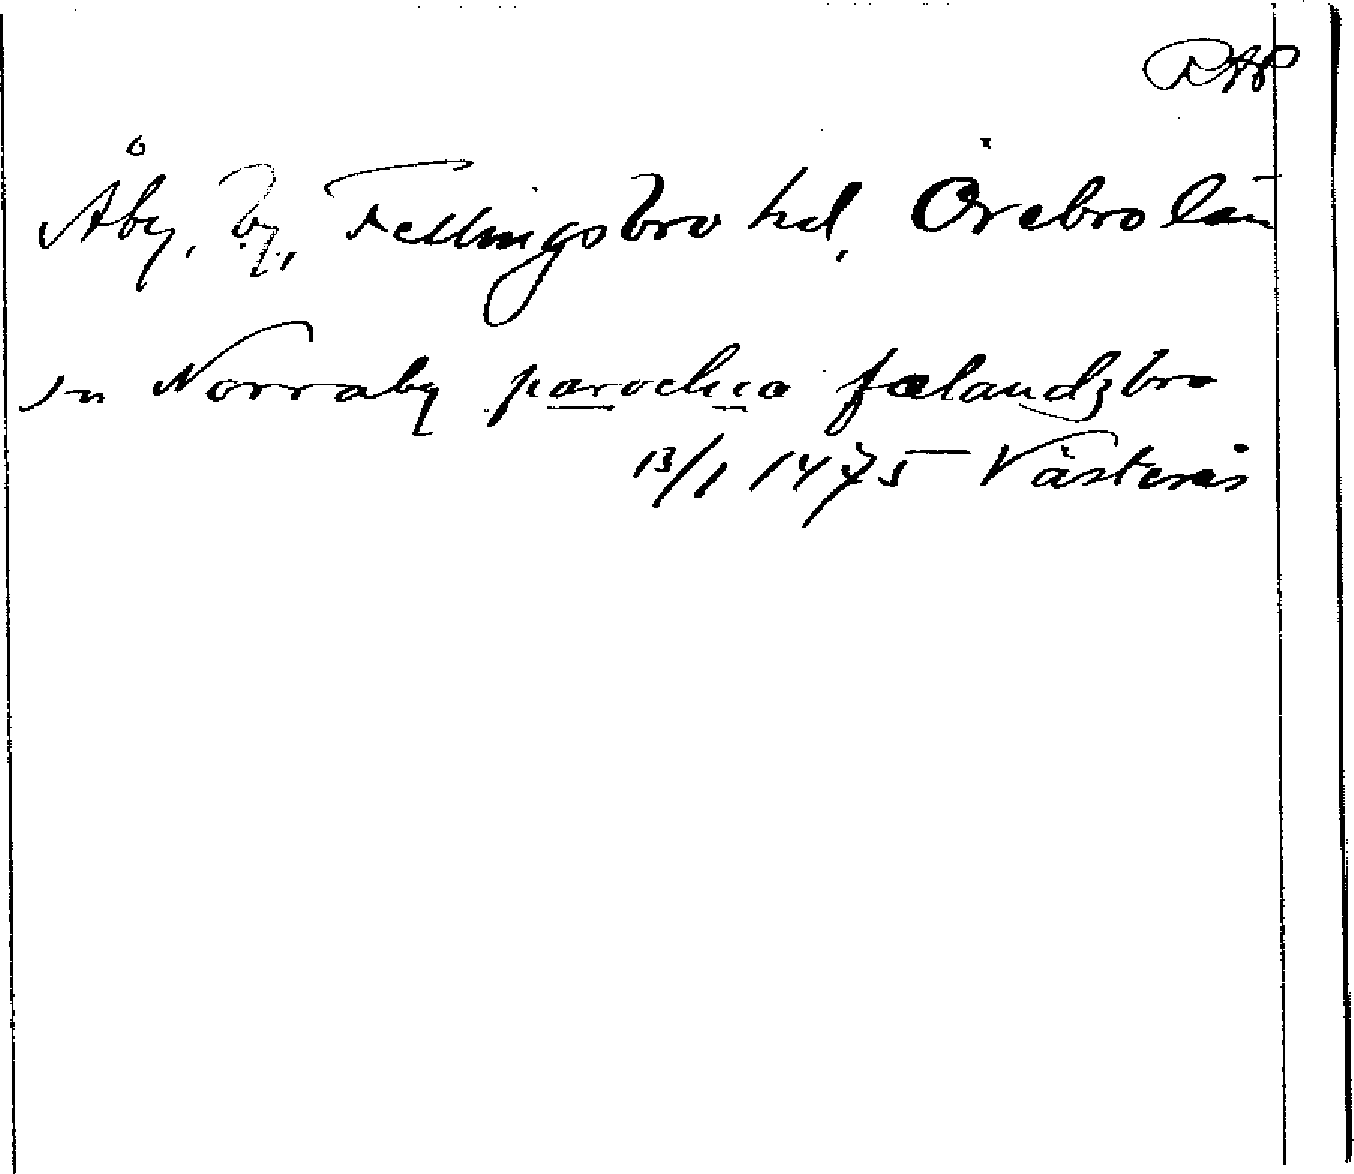 RAP
Åby, by, Fellingsbro hd, Örebro län
in Norraby parochia fælandzbro
13/1 1475 Västerås